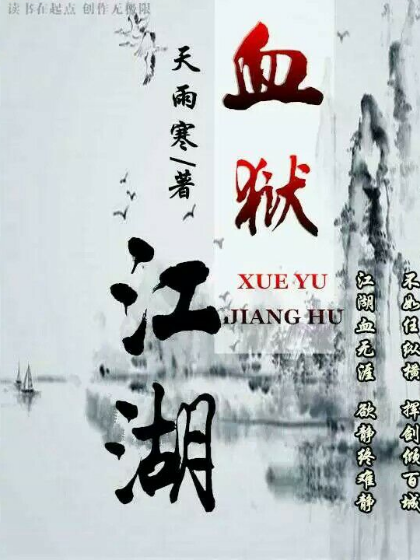 读书在起点 创作无极限
天雨寒/著
血狱
XUE YU
JIANG HU
江湖
不如任纵横 挥剑倾百城
江湖血无涯 欲静终难静